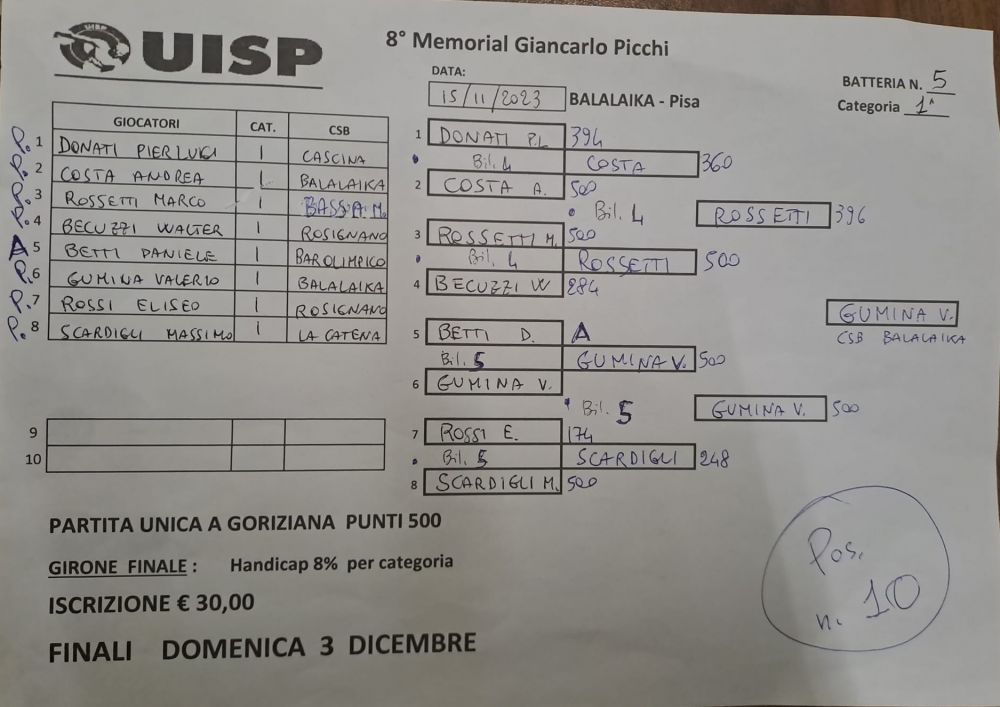 UISP
8° Memorial Giancarlo Picchi
DATA:
15/11/2023 BALALAIKA - Pisa
BATTERIA N. 5
Categoria 1^
GIOCATORI CAT. CSB
P. 1 DONATI PIERLUIGI 1 CASCINA
P. 2 COSTA ANDREA 1 BALALAIKA
P. 3 ROSSETTI MARCO 1 BASSA M.
P. 4 BECUZZI WALTER 1 ROSIGNANO
A 5 BETTI DANIELE 1 BAROLIMPICO
P. 6 GUMINA VALERIO 1 BALALAIKA
P. 7 ROSSI ELISEO 1 ROSIGNANO
P. 8 SCARDIGLI MASSIMO 1 LA CATENA
9
10
1 DONATI P.L 394
Bil. 4 COSTA 360
2 COSTA A. 500
Bil. 4 ROSSETTI 396
3 ROSSETTI M. 500
Bil. 4 ROSSETTI 500
4 BECUZZI W 284
GUMINA V.
CSB BALALAIKA
5 BETTI D. A
Bil. 5 GUMINA V. 500
6 GUMINA V.
Bil. 5 GUMINA V. 500
7 ROSSI E. 174
Bil. 5 SCARDIGLI 248
8 SCARDIGLI M. 500
PARTITA UNICA A GORIZIANA PUNTI 500
GIRONE FINALE : Handicap 8% per categoria
ISCRIZIONE € 30,00
FINALI DOMENICA 3 DICEMBRE
Pos.
n. 10